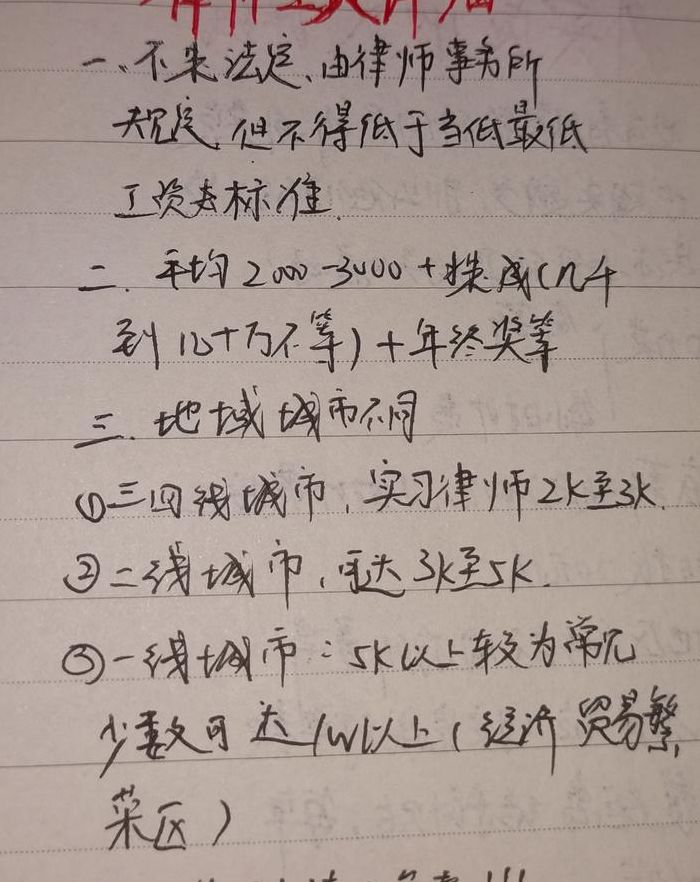 一、不来法定、由律师事务所
规定，但不得低于当低最低
工资去标准.
二、平均2000-3000+提成(几千
到几十万不等)+年终奖等
三、地域城市不同
①三四线城市，实习律师2K至3K.
②二线城市，可达3K至5K.
③一线城市：5K以上较为常见
少数可达1W以上(经济贸易繁
荣区)